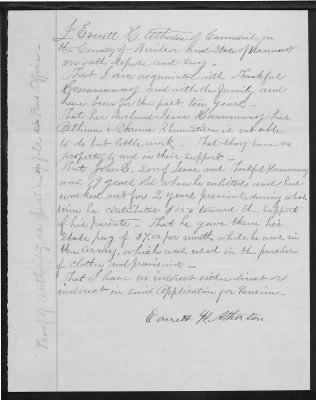 I Everett H. Atherton of Cavendish in
the County of Windsor and State of Vermont
on oath depose and say —
That I am acquainted with Thankful
Hemmenway and with the family and
have been for the past ten years —
That her husband Isaac Hemmenway has
Asthma & Chronic Rheumatism is not able
to do but little work — That they have no
property to aid in their support —
That John E. Son of Isaac and Thankful Hemmenway
was 19 years old when he enlisted and had
worked out for 2 years previous during which
time he contributed $150 toward the support
of his parents — That he gave them his
State pay of $7.00 per month while he was in
the Army, which was used in the purchase
of clothes and provisions —
That I have no interest either direct or
indirect in said Application for Pension —
Everett H. Atherton
Proof of Authority as Justice on file in Pen Office —